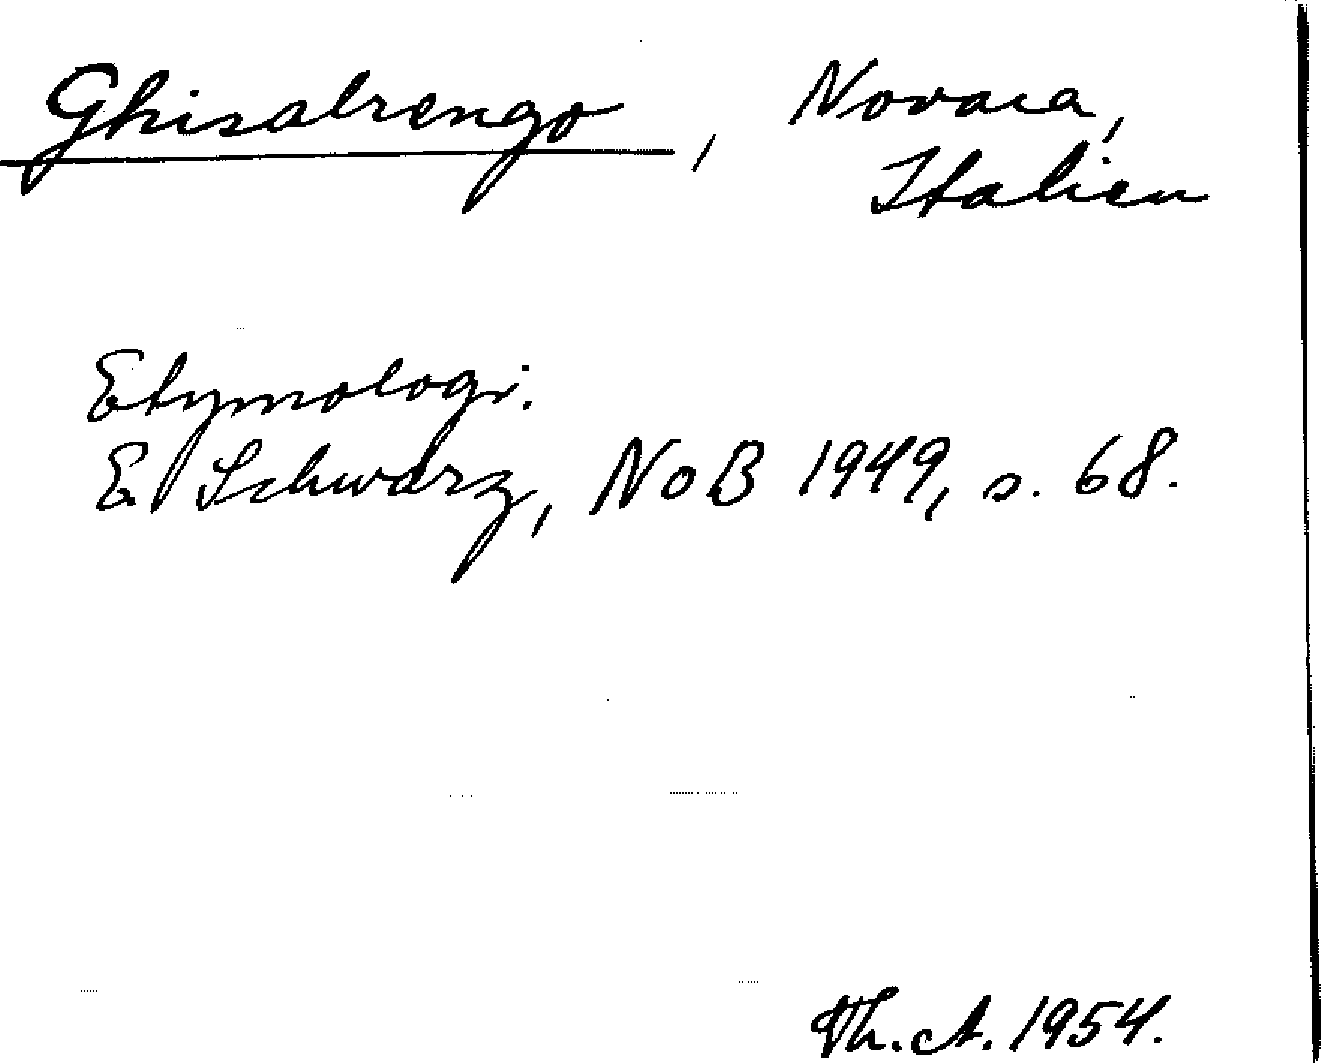 Ghisalrengo, Novara,
Italien
Etymologi:
E Schwarz, NoB 1949, s. 68.
Th. A. 1954.